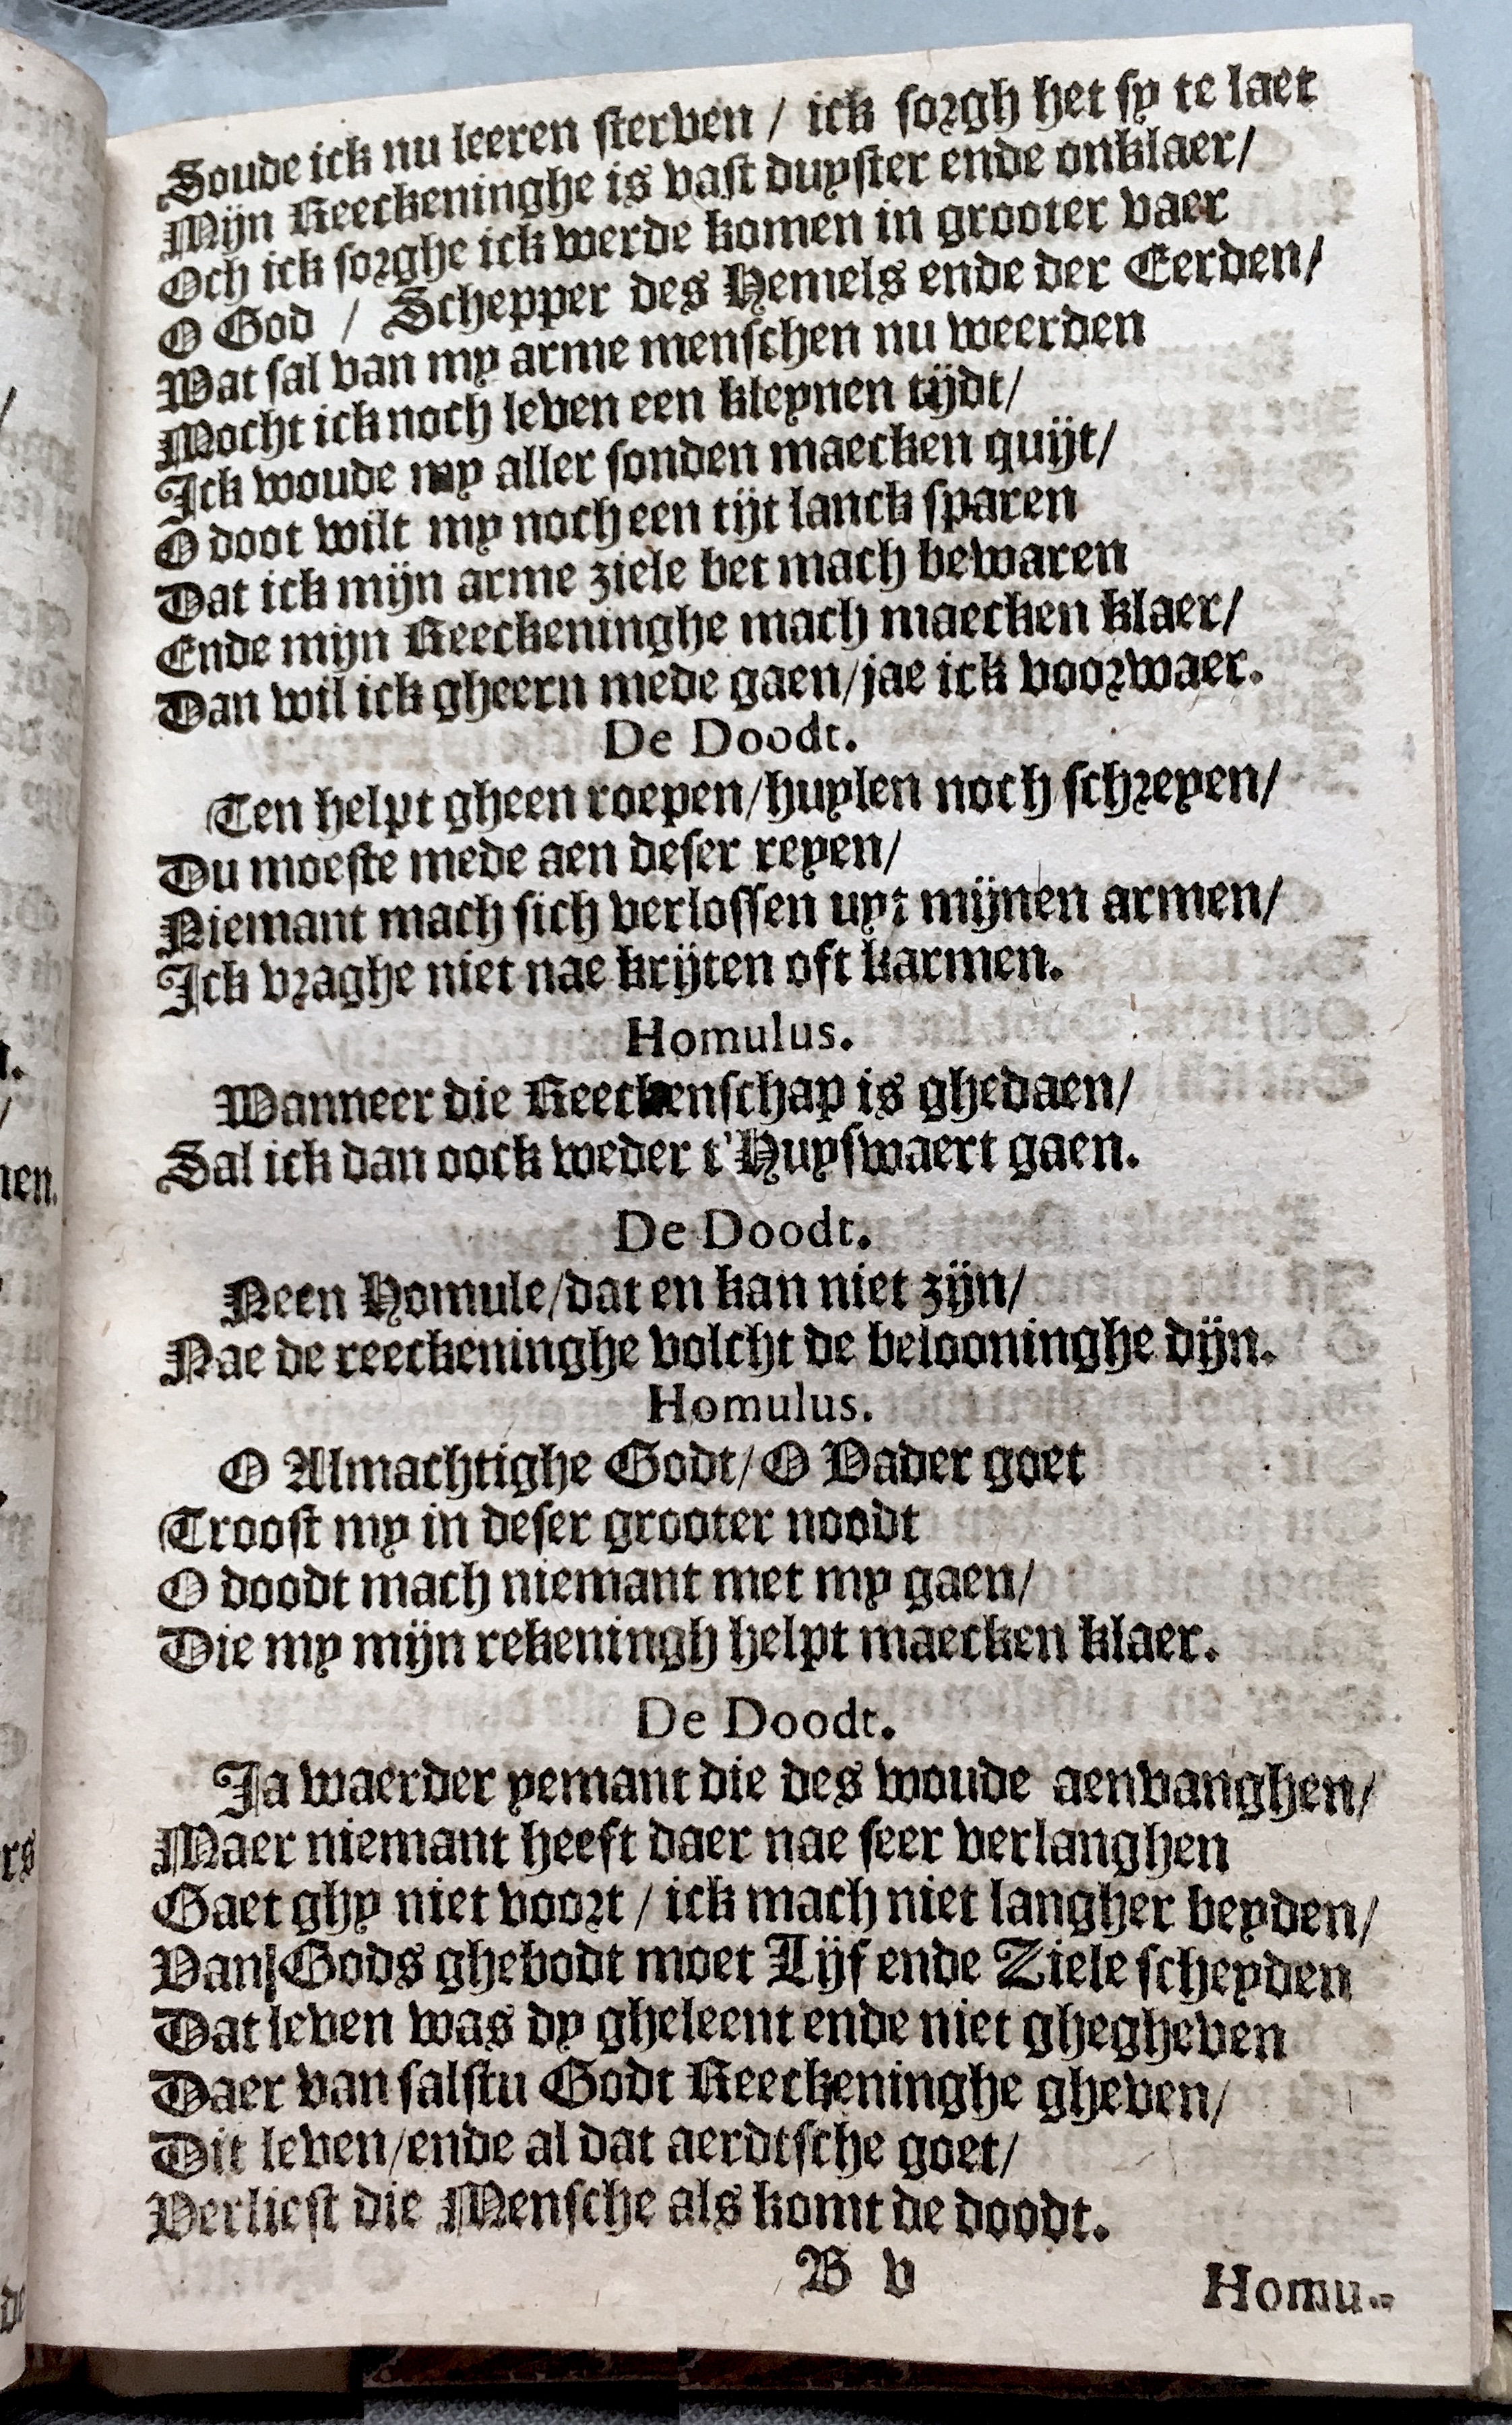 Soude ick nu leeren sterven / ick sorgh het sy te laet
Mijn Reeckeninghe is vast duyster ende onklaer/
Och ick sorghe ick werde komen in grooter vaer
O God / Schepper des Hemels ende der Eerden/
Wat sal van my arme menschen nu weerden
Mocht ick noch leven een kleynen tijdt/
Ick woude my aller sonden maecken quijt/
O doot wilt my noch een tijt lanck sparen
Dat ick mijn arme ziele bet mach bewaren
Ende mijn Reeckeninghe mach maecken klaer/
Dan wil ick gheern mede gaen/jae ick voorwaer.
De Doodt.
Ten helpt gheen roepen/huylen noch schreyen/
Du moeste mede aen deser reyen/
Niemant mach sich verlossen uyt mijnen armen/
Ick vraghe niet nae krijten oft karmen.
Homulus.
Wanneer die Reeckenschap is ghedaen/
Sal ick dan oock weder t'Huyswaert gaen.
De Doodt.
Neen Homule/dat en kan niet zijn/
Nae de reeckeninghe volcht de belooninghe dijn.
Homulus.
O Almachtighe Godt/O Vader goet
Troost my in deser grooter noodt
O doodt mach niemant met my gaen/
Die my mijn rekeningh helpt maecken klaer.
De Doodt.
Ja waerder yemant die des woude aenvanghen/
Maer niemant heeft daer nae seer verlanghen
Gaet ghy niet voort / ick mach niet langher beyden/
Van Gods ghebodt moet Lijf ende Ziele scheyden
Dat leven was dy gheleent ende niet ghegheven
Daer van salstu Godt Reeckeninghe gheven/
Dit leven/ende al dat aerdtsche goet/
Verliest die Mensche als komt de doodt.
B v
Homu-